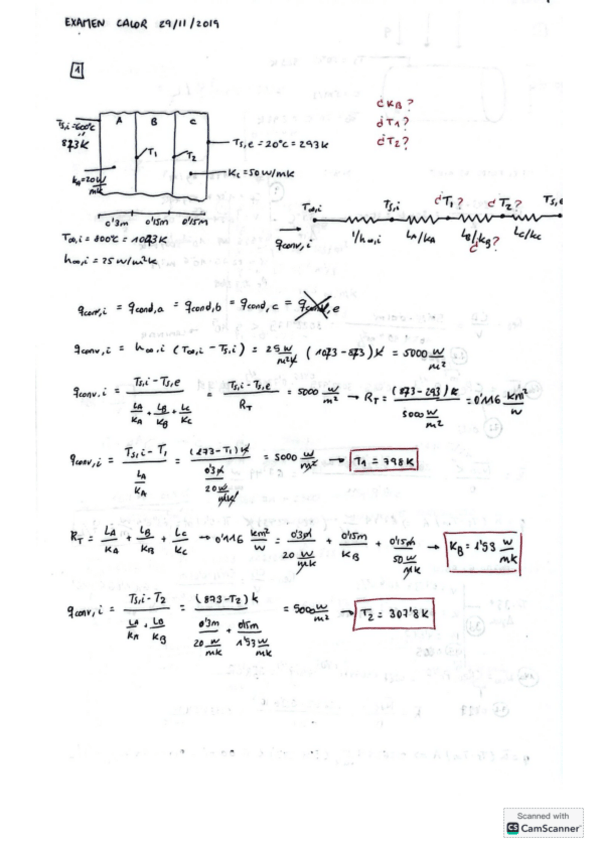 EXAMEN CALOR 29/11/2019
1
A B C
Ts,i=600°C
873K
T1
T2
Ts,e = 20°C = 293K
kA=20 W/mK
Kc = 50 W/mk
0'3m 0'15m 0'15m
T∞,i = 800°C = 1073K
h∞,i = 25 W/m²K
¿KB?
¿T1?
¿T2?
T∞,i Ts,i ¿T1? ¿T2? Ts,e
qconv,i
1/h∞,i LA/KA LB/KB? LC/KC
¿
qconv,i = qcond,a = qcond,b = qcond,c = qconv,e
qconv,i = h∞,i (T∞,i - Ts,i) = 25 W/m²K (1073-873)K = 5000 W/m²
qconv,i = (Ts,i - Ts,e) / (LA/KA + LB/KB + LC/KC) = (Ts,i - Ts,e) / RT = 5000 W/m² → RT = (873-293)K / 5000 W/m² = 0'116 Km²/W
qconv,i = (Ts,i - T1) / (LA/KA) = (873-T1)K / (0'3m / 20 W/mK) = 5000 W/m² → T1 = 798K
RT = LA/KA + LB/KB + LC/KC → 0'116 Km²/W = 0'3m / 20 W/mK + 0'15m / KB + 0'15m / 50 W/mK → KB = 1'53 W/mK
qconv,i = (Ts,i - T2) / (LA/KA + LB/KB) = (873-T2)K / (0'3m / 20 W/mK + 0'15m / 1'53 W/mK) = 5000 W/m² → T2 = 307'8K
Scanned with
CS CamScanner